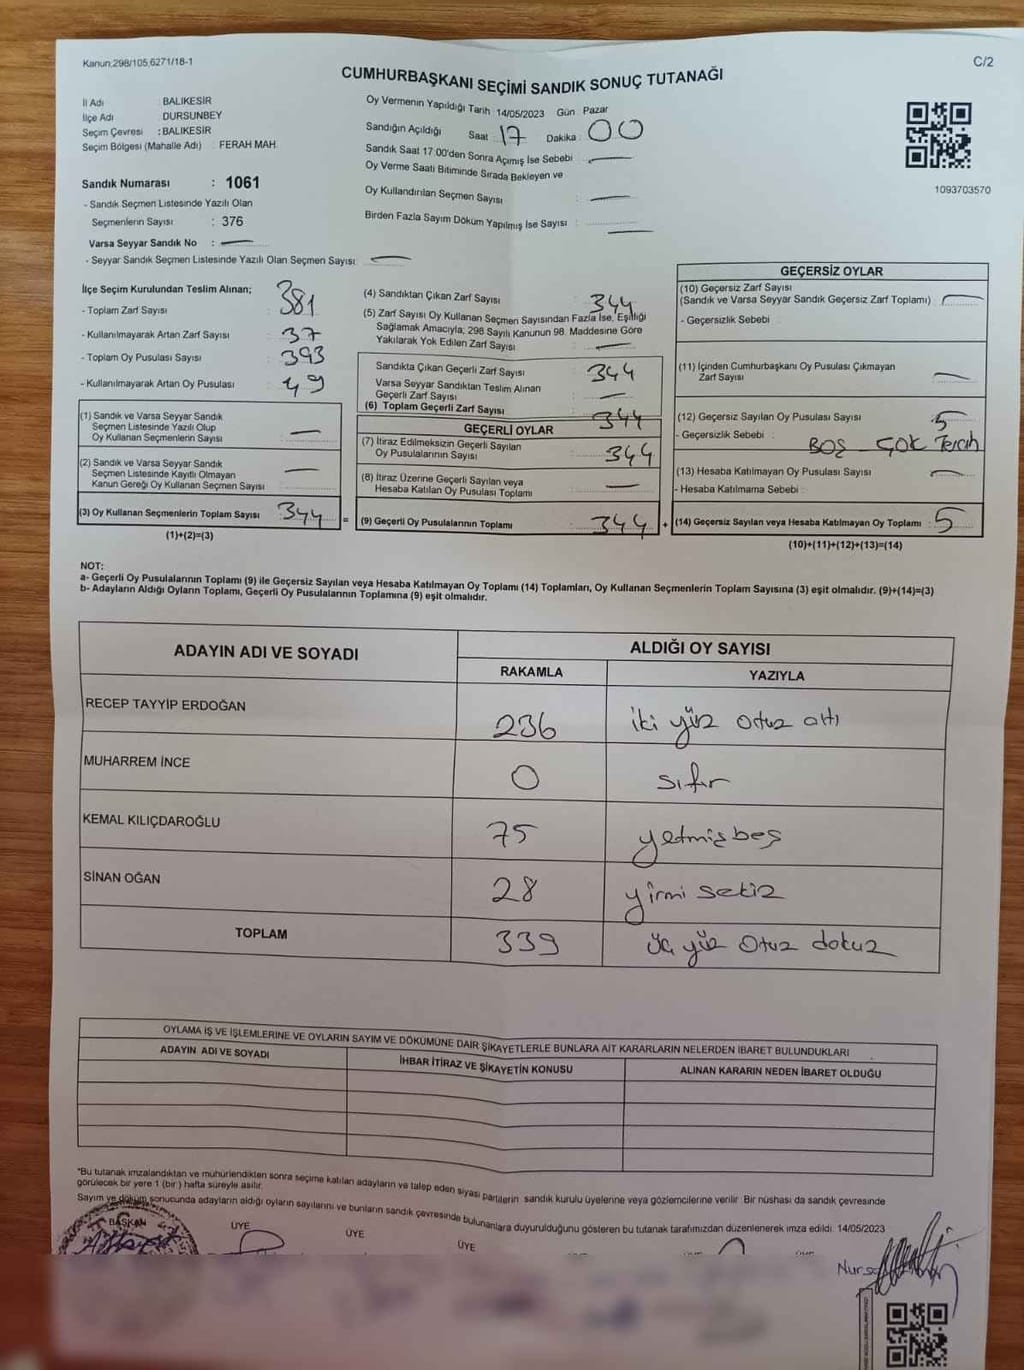 Kanun;298/105,6271/18-1
C/2
CUMHURBAŞKANI SEÇİMİ SANDIK SONUÇ TUTANAĞI
İl Adı : BALIKESİR
İlçe Adı : DURSUNBEY
Seçim Çevresi : BALIKESİR
Seçim Bölgesi (Mahalle Adı) : FERAH MAH.
Sandık Numarası : 1061
- Sandık Seçmen Listesinde Yazılı Olan
Seçmenlerin Sayısı : 376
Varsa Seyyar Sandık No :
- Seyyar Sandık Seçmen Listesinde Yazılı Olan Seçmen Sayısı :
Oy Vermenin Yapıldığı Tarih 14/05/2023 Gün Pazar
Sandığın Açıldığı Saat : 17 Dakika : 00
Sandık Saat 17:00'den Sonra Açımış İse Sebebi :
Oy Verme Saati Bitiminde Sırada Bekleyen ve
Oy Kullandırılan Seçmen Sayısı :
Birden Fazla Sayım Döküm Yapılmış İse Sayısı :
1093703570
İlçe Seçim Kurulundan Teslim Alınan;
- Toplam Zarf Sayısı : 381
- Kullanılmayarak Artan Zarf Sayısı : 37
- Toplam Oy Pusulası Sayısı : 393
- Kullanılmayarak Artan Oy Pusulası : 49
(1) Sandık ve Varsa Seyyar Sandık
Seçmen Listesinde Yazılı Olup
Oy Kullanan Seçmenlerin Sayısı :
(2) Sandık ve Varsa Seyyar Sandık
Seçmen Listesinde Kayıtlı Olmayan
Kanun Gereği Oy Kullanan Seçmen Sayısı :
(3) Oy Kullanan Seçmenlerin Toplam Sayısı : 344 =
(1)+(2)=(3)
(4) Sandıktan Çıkan Zarf Sayısı : 344
(5) Zarf Sayısı Oy Kullanan Seçmen Sayısından Fazla İse, Eşitliği
Sağlamak Amacıyla, 298 Sayılı Kanunun 98. Maddesine Göre
Yakılarak Yok Edilen Zarf Sayısı :
Sandıkta Çıkan Geçerli Zarf Sayısı : 344
Varsa Seyyar Sandıktan Teslim Alınan
Geçerli Zarf Sayısı :
(6) Toplam Geçerli Zarf Sayısı : 344
GEÇERLİ OYLAR
(7) İtiraz Edilmeksizin Geçerli Sayılan
Oy Pusulalarının Sayısı : 344
(8) İtiraz Üzerine Geçerli Sayılan veya
Hesaba Katılan Oy Pusulası Toplamı :
(9) Geçerli Oy Pusulalarının Toplamı : 344 +
GEÇERSİZ OYLAR
(10) Geçersiz Zarf Sayısı
(Sandık ve Varsa Seyyar Sandık Geçersiz Zarf Toplamı) :
- Geçersizlik Sebebi :
(11) İçinden Cumhurbaşkanı Oy Pusulası Çıkmayan
Zarf Sayısı :
(12) Geçersiz Sayılan Oy Pusulası Sayısı : 5
- Geçersizlik Sebebi : BOŞ - ÇOK Tercih
(13) Hesaba Katılmayan Oy Pusulası Sayısı :
- Hesaba Katılmama Sebebi :
(14) Geçersiz Sayılan veya Hesaba Katılmayan Oy Toplamı : 5
(10)+(11)+(12)+(13)=(14)
NOT:
a- Geçerli Oy Pusulalarının Toplamı (9) ile Geçersiz Sayılan veya Hesaba Katılmayan Oy Toplamı (14) Toplamları, Oy Kullanan Seçmenlerin Toplam Sayısına (3) eşit olmalıdır. (9)+(14)=(3)
b- Adayların Aldığı Oyların Toplamı, Geçerli Oy Pusulalarının Toplamına (9) eşit olmalıdır.
ADAYIN ADI VE SOYADI
ALDIĞI OY SAYISI
RAKAMLA YAZIYLA
RECEP TAYYİP ERDOĞAN 236 iki yüz otuz altı
MUHARREM İNCE 0 sıfır
KEMAL KILIÇDAROĞLU 75 yetmişbeş
SİNAN OĞAN 28 yirmi sekiz
TOPLAM 339 üç yüz otuz dokuz
OYLAMA İŞ VE İŞLEMLERİNE VE OYLARIN SAYIM VE DÖKÜMÜNE DAİR ŞİKAYETLERLE BUNLARA AİT KARARLARIN NELERDEN İBARET BULUNDUKLARI
ADAYIN ADI VE SOYADI İHBAR İTİRAZ VE ŞİKAYETİN KONUSU ALINAN KARARIN NEDEN İBARET OLDUĞU
*Bu tutanak imzalandıktan ve mühürlendikten sonra seçime katılan adayların ve talep eden siyasi partilerin sandık kurulu üyelerine veya gözlemcilerine verilir. Bir nüshası da sandık çevresinde
görülecek bir yere 1 (bir) hafta süreyle asılır.
Sayım ve döküm sonucunda adayların aldığı oyların sayılarını ve bunların sandık çevresinde bulunanlara duyurulduğunu gösteren bu tutanak tarafımızdan düzenlenerek imza edildi. 14/05/2023
BAŞKAN ÜYE ÜYE ÜYE